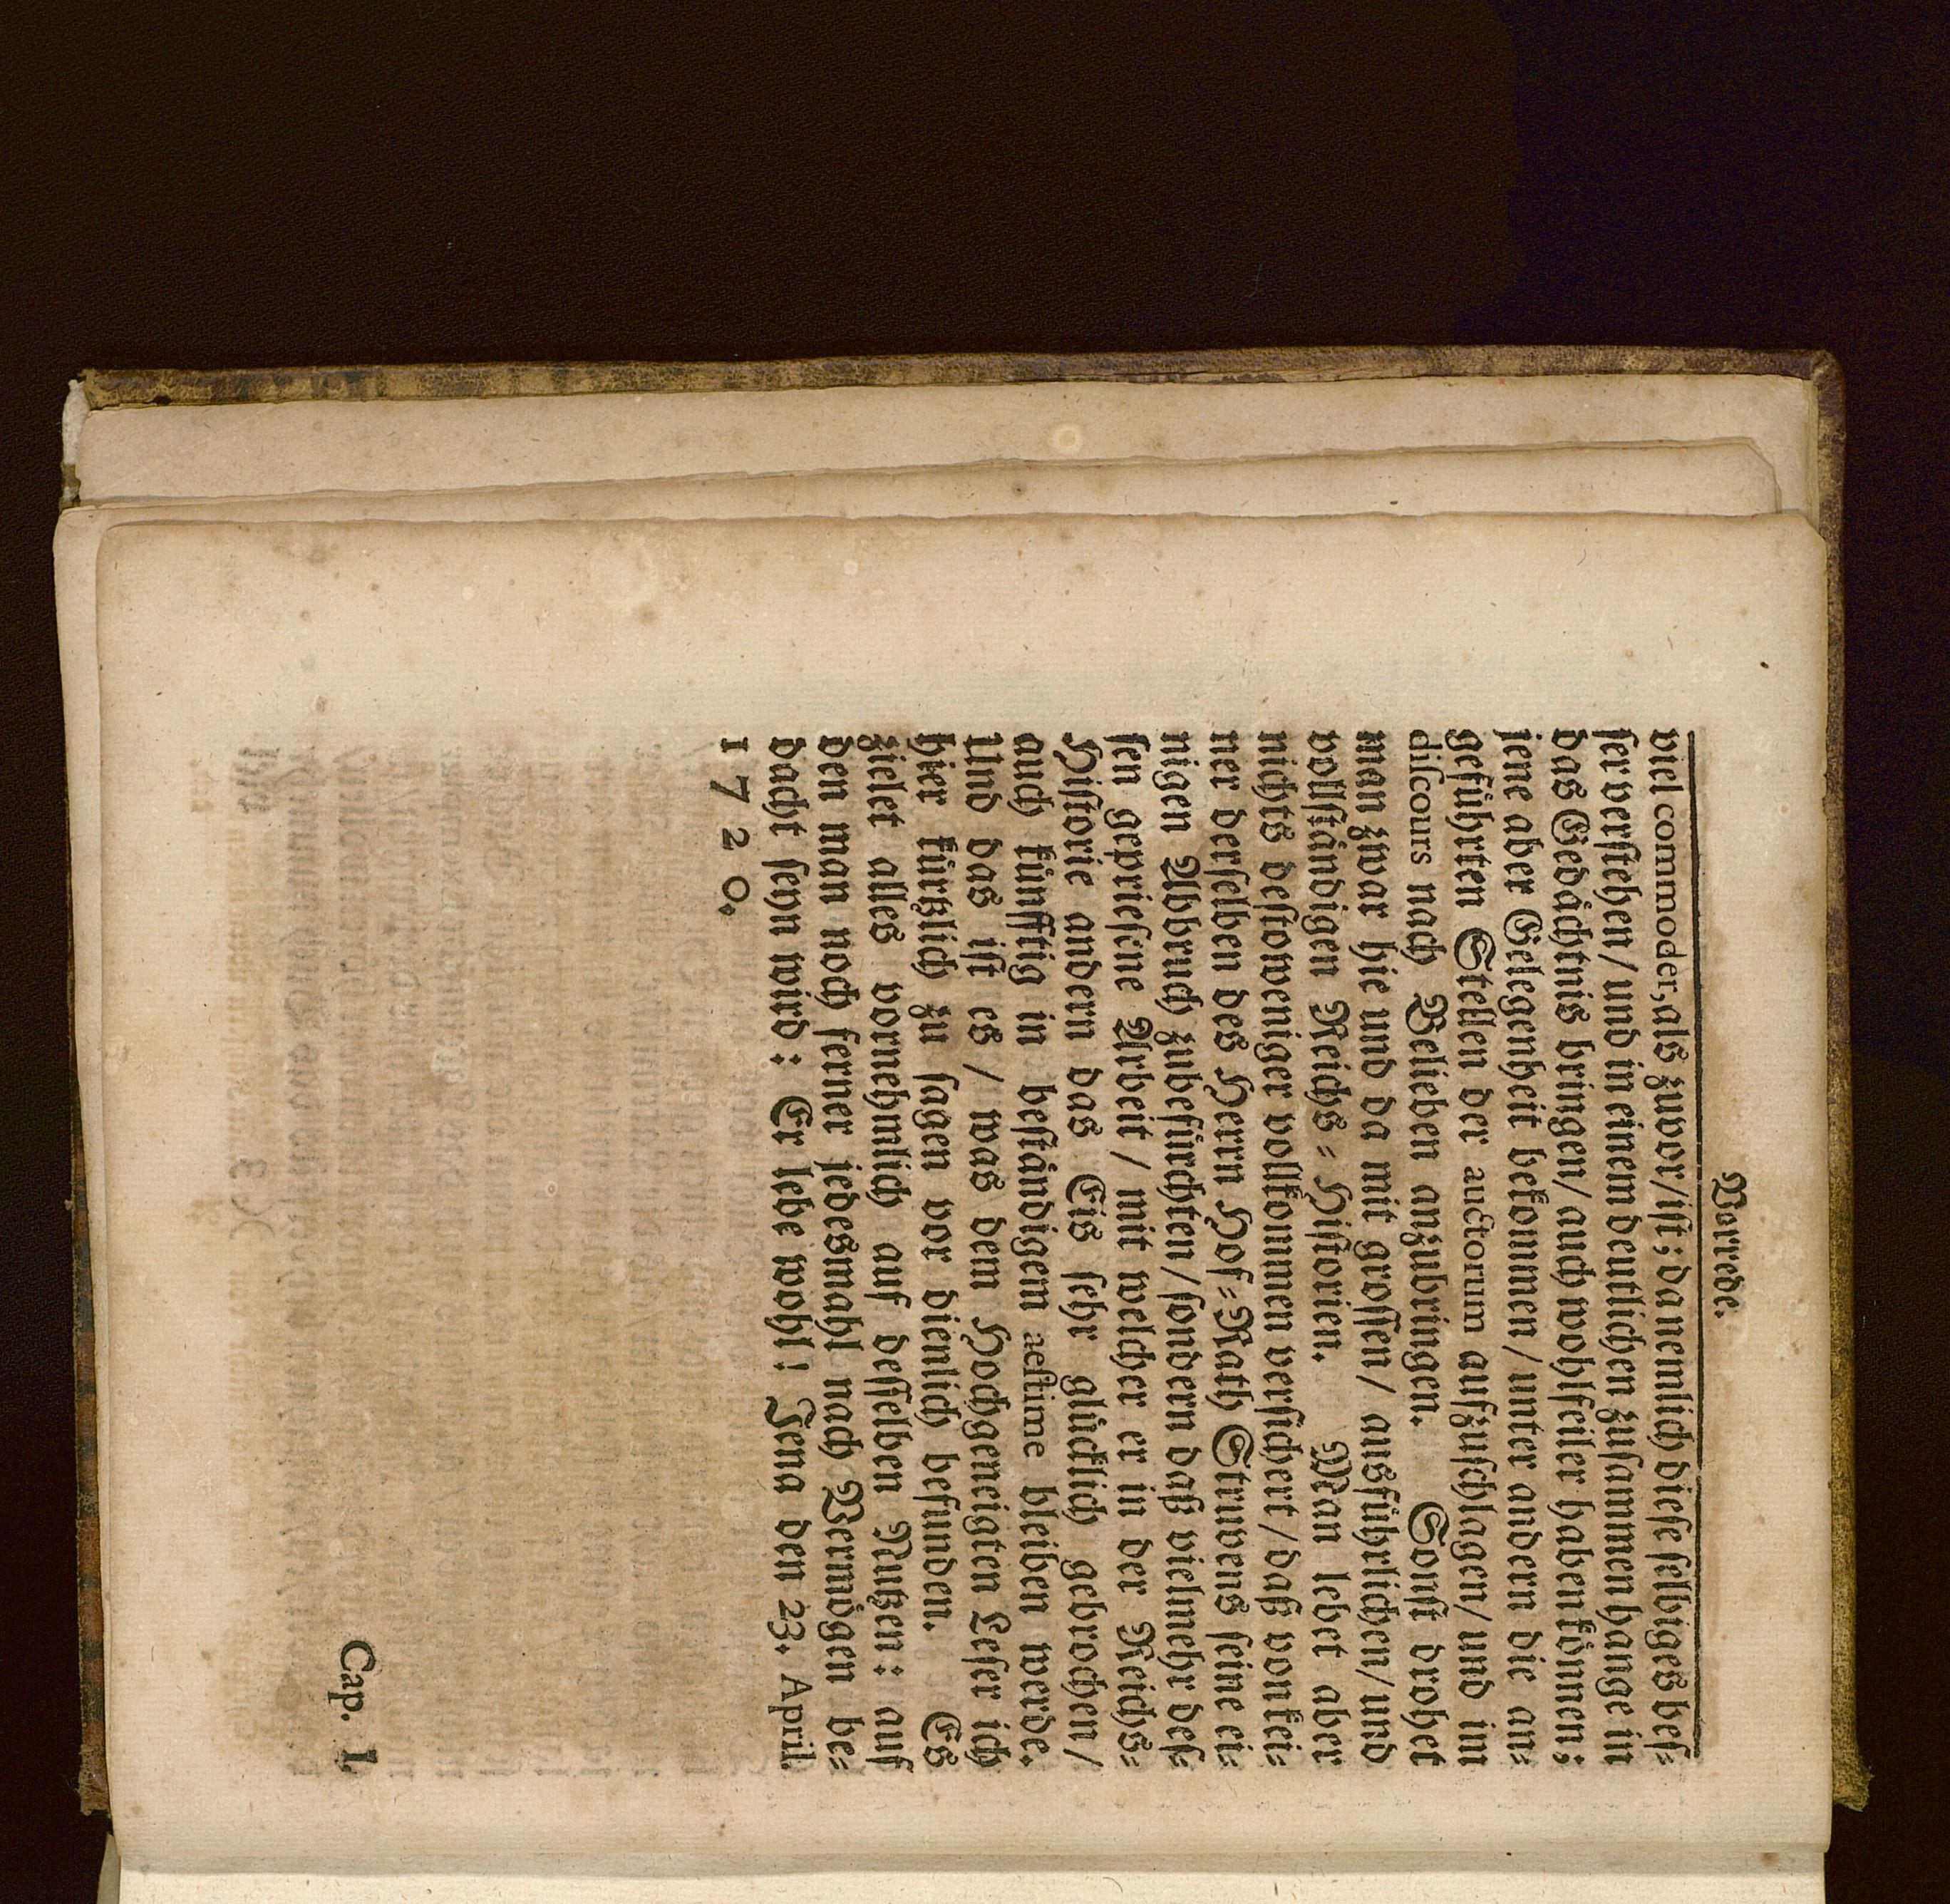 Vorrede.
viel commoder, als zuvor/ ist; da nemlich diese selbiges bes⸗
ser verstehen/ und in einem deutlichen zusammenhange in
das Gedächtnis bringen/ auch wohlfeiler haben können;
jene aber Gelegenheit bekommen/ unter andern die an⸗
geführten Stellen der auctorum aufzuschlagen/ und im
discours nach Belieben anzubringen. Sonst drohet
man zwar hie und da mit grossen/ ausführlichen/ und
vollständigen Reichs⸗Historien. Man lebet aber
nichts destoweniger vollkommen versichert/ daß von kei⸗
ner derselben des Herrn Hof⸗Rath Struvens seine ei⸗
nigen Abbruch zubefürchten/ sondern daß vielmehr des⸗
sen gepriesene Arbeit/ mit welcher er in der Reichs⸗
Historie andern das Eis sehr glücklich gebrochen/
auch künfftig in beständigem aestime bleiben werde.
Und das ist es/ was dem Hochgeneigten Leser ich
hier kürtzlich zu sagen vor dienlich befunden. Es
zielet alles vornehmlich auf desselben Nutzen: auf
den man noch ferner jedesmahl nach Vermögen be⸗
dacht seyn wird: Er lebe wohl! Jena den 23. April.
1720.
Cap. I.